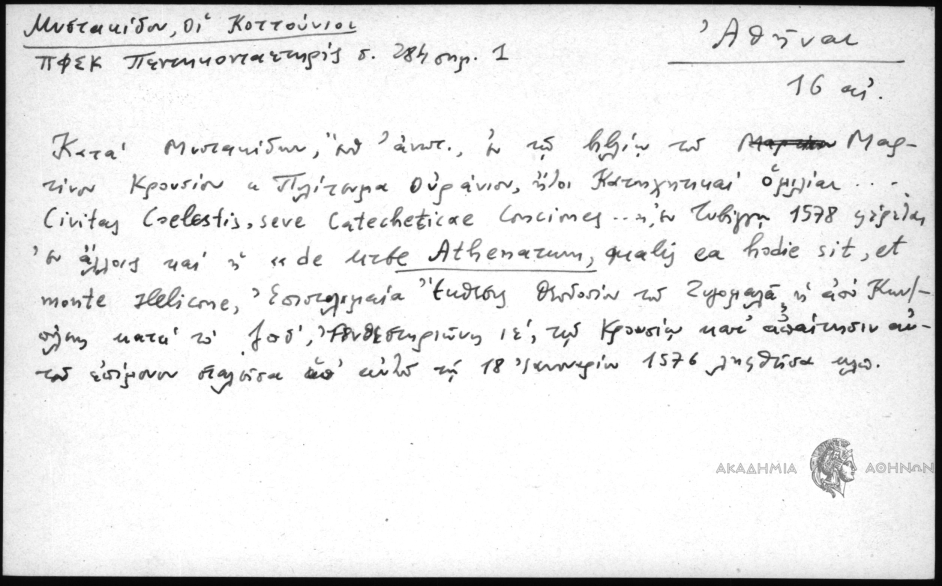 Μυστακίδου, Οἱ Κοττούνιοι
ΠΦΣΚ Πεντηκονταετηρὶς σ. 284 σημ. 1
Ἀθῆναι
16 αἰ.
Κατὰ Μυστακίδην, ἔνθ' ἀνωτ., ἐν τῷ βιβλίῳ τοῦ Μαρ-
τίνου Κρουσίου « Πολίτευμα Οὐράνιον, ἤτοι Κατηχητικαὶ ὁμιλίαι ...
Civitas Coelestis, seve Catecheticae Conciones ... ἐν Τυβίγγῃ 1578 φέρεται
ἐν ἄλλοις καὶ ἡ « de urbe Athenarum, qualis ea hodie sit, et
monte Helicone, Ἐπιστολιμαία Ἔκθεσις Θεοδοσίου τοῦ Ζυγομαλᾶ, ἡ ἀπὸ Κων/-
πόλεως κατὰ τὸ ͵αφοδ΄, Ἀνθεστηριῶνος ιε΄, τῷ Κρουσίῳ κατ' ἀπαίτησιν αὐ-
τοῦ ἐπίμονον σταλεῖσα ὑπ' αὐτοῦ τῇ 18 Ἰανουαρίου 1576 ληφθεῖσα κλπ.
ΑΚΑΔΗΜΙΑ ΑΘΗΝΩΝ